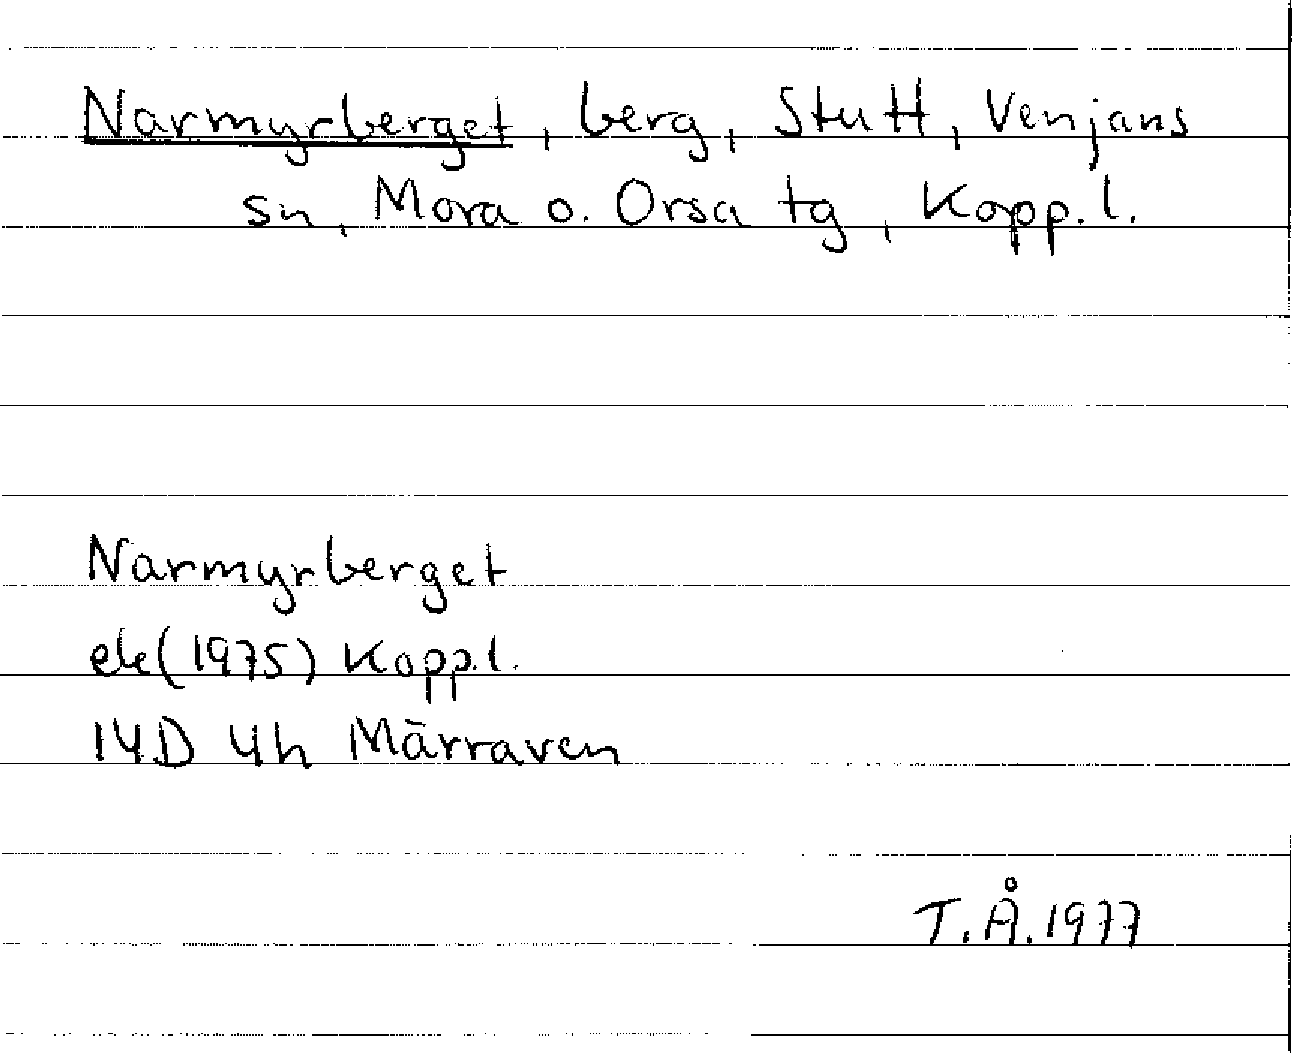 Narmyrberget, berg, Stutt, Venjans
sn, Mora o. Orsa tg, Kopp. l.
Narmyrberget
ek (1975) Kopp. l.
14D 4h Märraven
T.Å. 1977